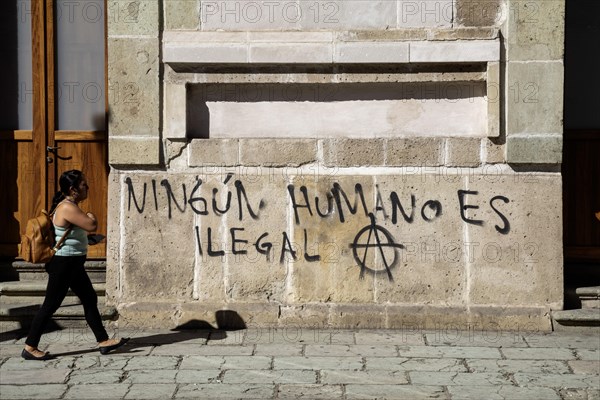 Ningún Humano es
ilegal